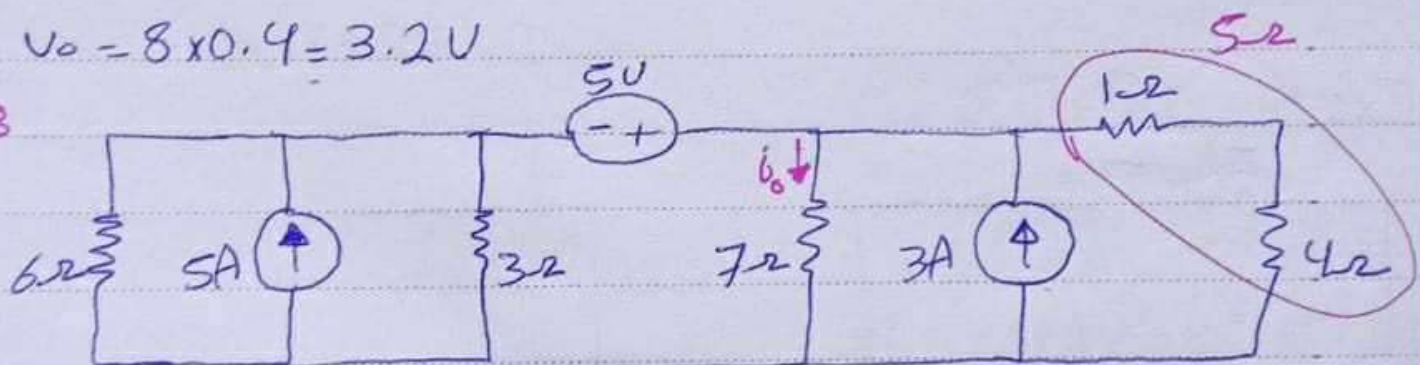 Vo = 8 x 0.4 = 3.2V
5Ω
5V
1Ω
- +
3
io
6Ω
5A
3Ω
7Ω
3A
4Ω